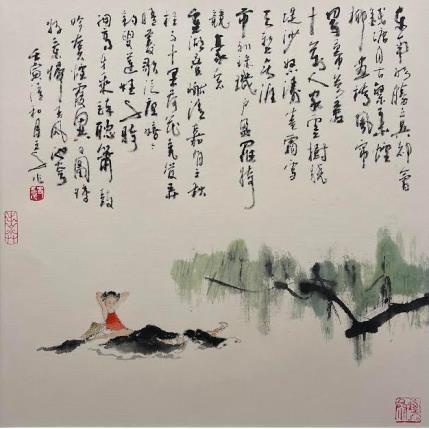 东南形勝三吳都會
錢塘自古繁華煙
柳畫橋風帘
翠幕参差
十萬人家雲樹繞
堤沙怒濤卷霜雪
天塹無涯
市列珠璣户盈羅綺
競豪奢
重湖叠巘清嘉有三秋
桂子十里荷花羌管弄
晴菱歌泛夜嬉〻
釣叟蓮娃千騎
擁高牙乘醉聽簫鼓
吟賞煙霞異日圖將
好景歸去鳳池夸
壬寅清和月